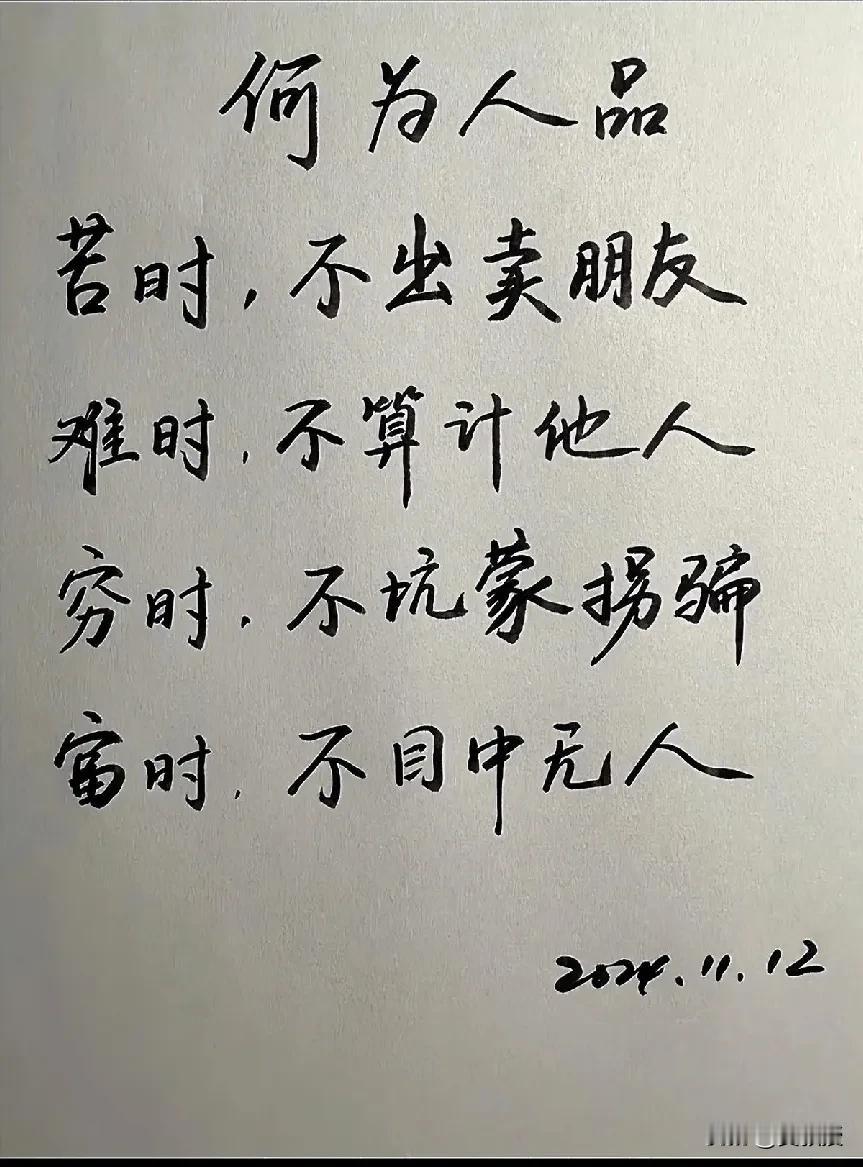 何为人品
苦时，不出卖朋友
难时，不算计他人
穷时，不坑蒙拐骗
富时，不目中无人
2024.11.12